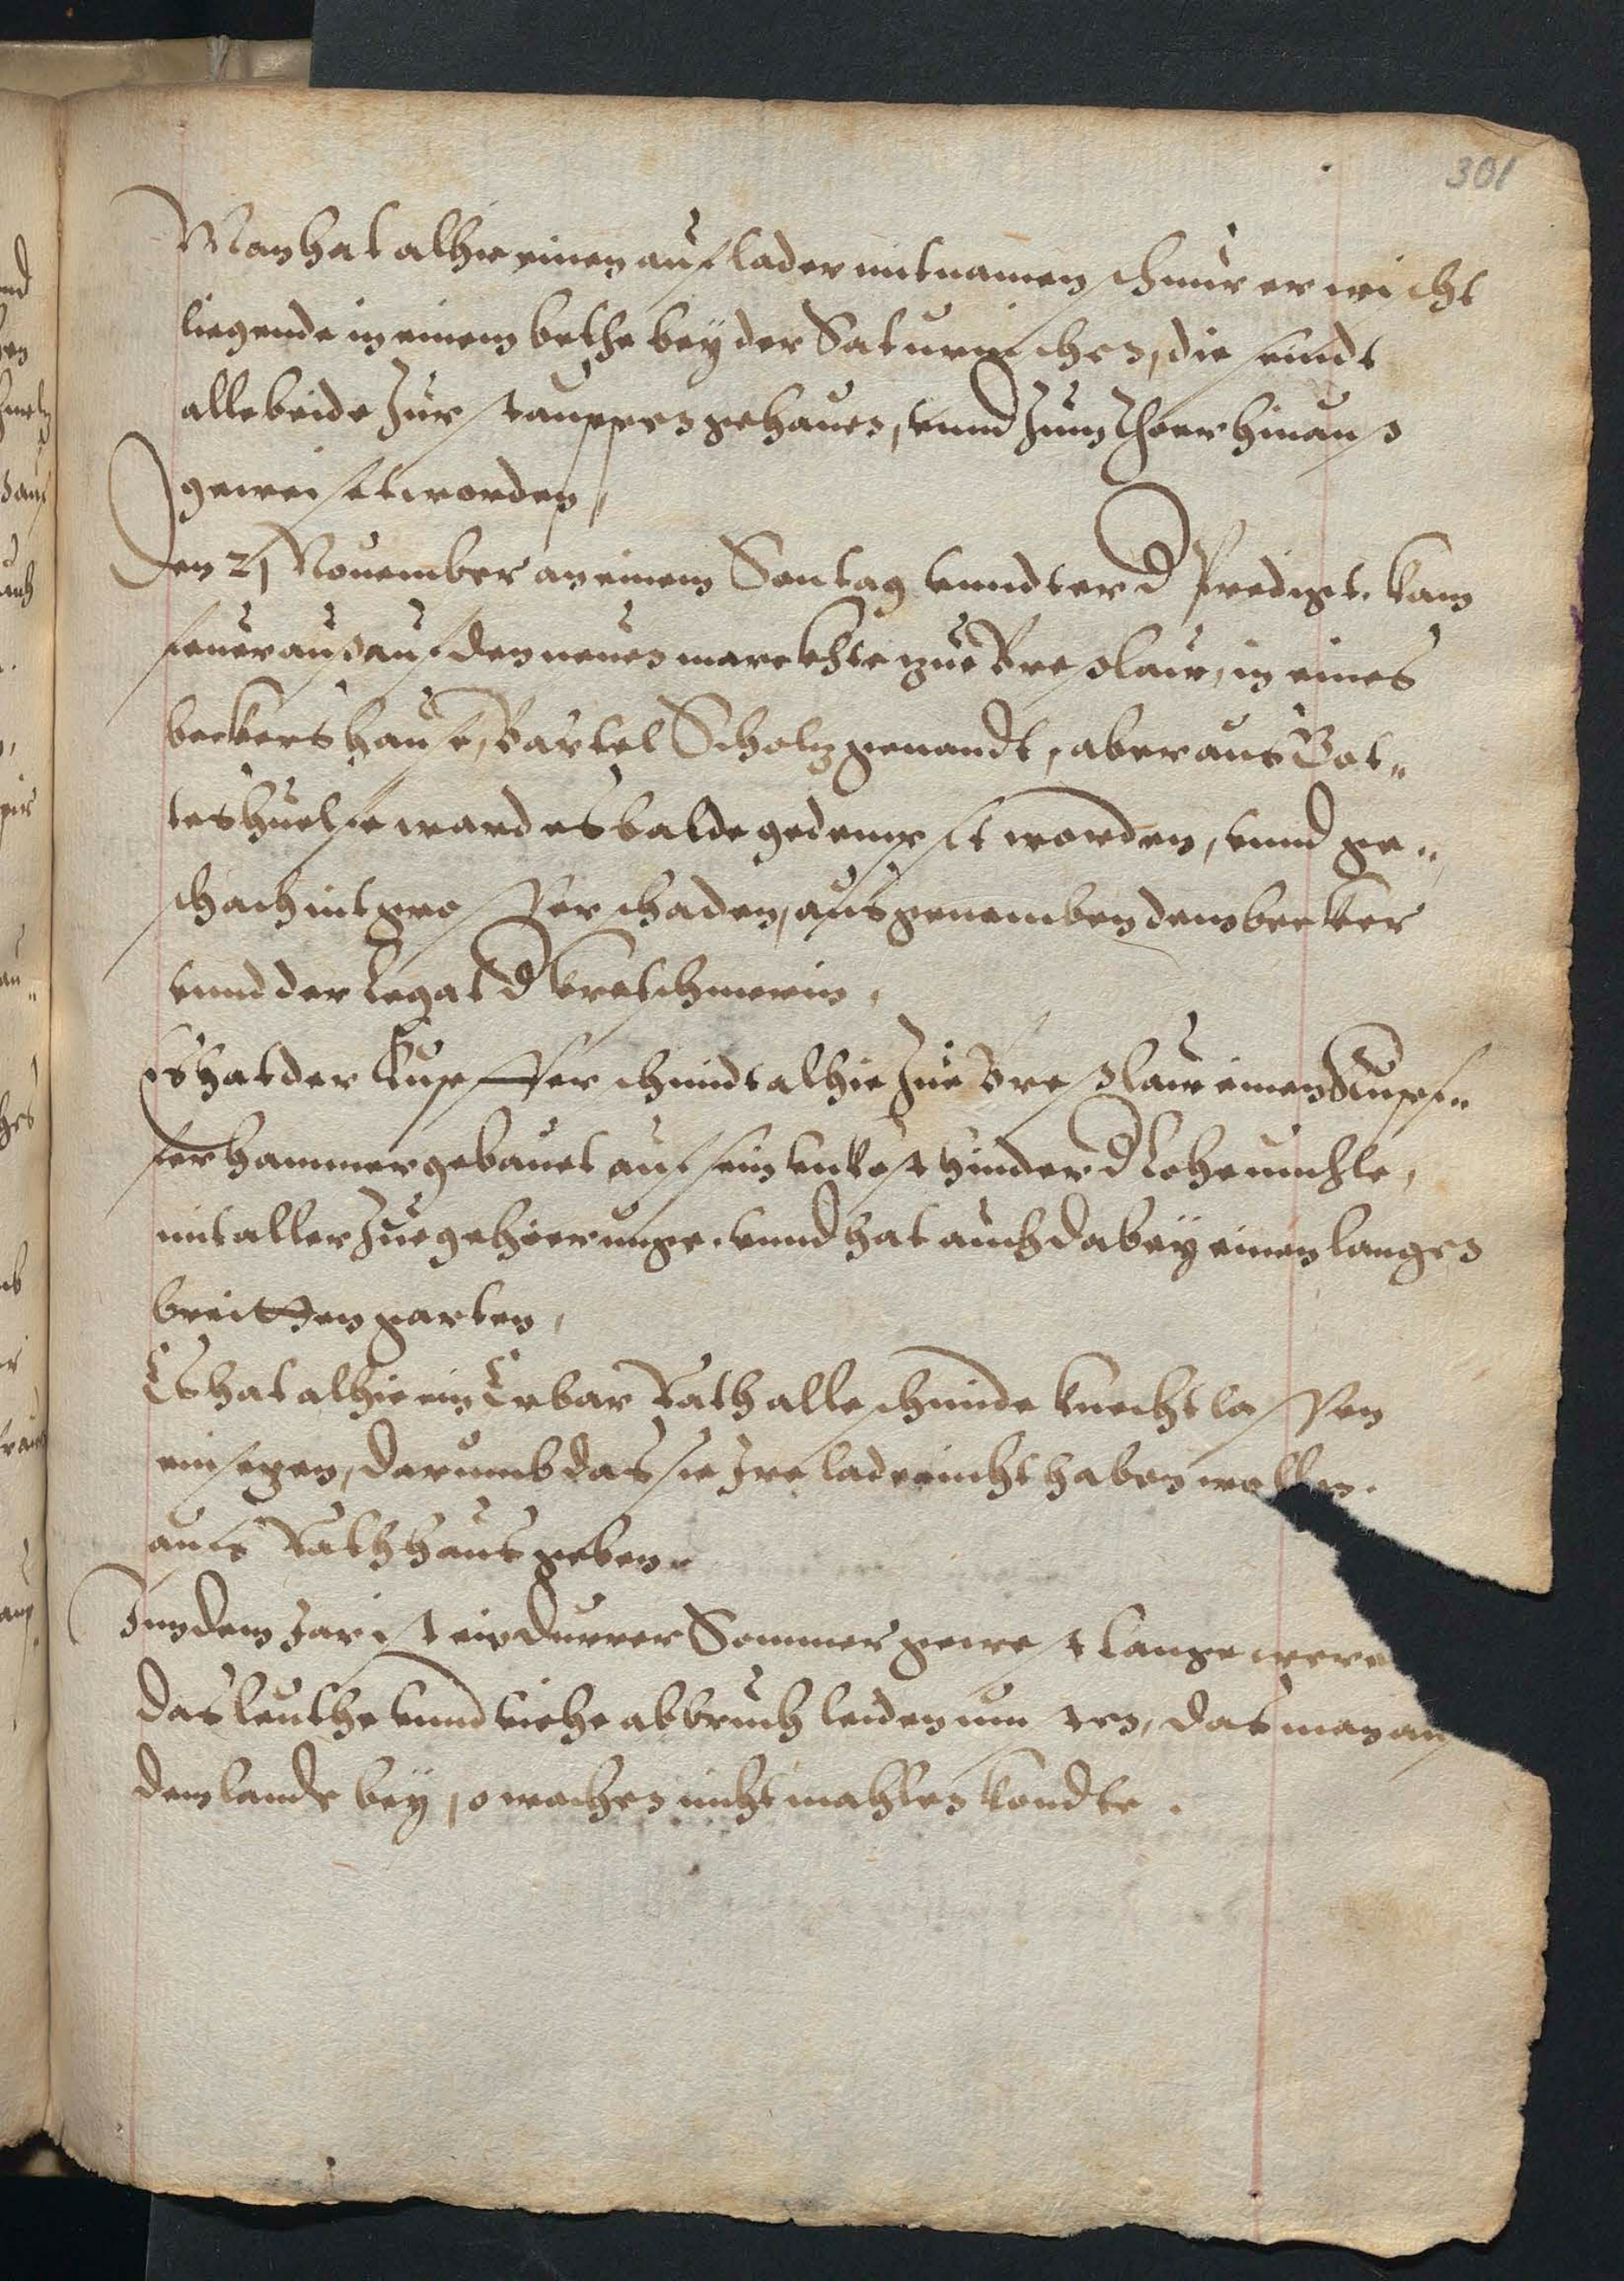 301
Man hat alhie einen auflader mit namen schnurer wischt
liegende in einem bethe bey der Saturnischen, die seindt
alle beide Zur staupen gehauen, vnnd Zum Thoer hinaus
geweiset worden,
Den 21 Nouember an einem Sontag vnndter d Predigt. kam
feuer aus auf den neuen marckhte zue Breslaw, in eines
beckers hause, Bartel Scholz genandt, aber aus Got„
tes huelfe ward es balde gedempfet worden, vnnd ge„
schach nit grosser schaden, ausgenomben dem becker
vnnd der legat d kretschmerin,
Es hat der Kupfferschmidt alhie Zue Breslaw einen Kupf„
fer hammer gebauet auf sein vnkost hinder d Lohemuhle,
mit aller Zuegehoerunge. vnnd hat auch dabey einen langen
breitten garten,
Es hat alhie ein Erbar Rath alle schmide knecht lassen
einsezen, darumb das sie Ire lade nicht haben wollen.
aufs Rathhaus geben.
Inn dem Jar ist ein durrer Sommer gewest lange
das leuthe vnnd viehe abbruch leiden musten, das man auf
dem lande bey wochen nicht mahlen kondte.